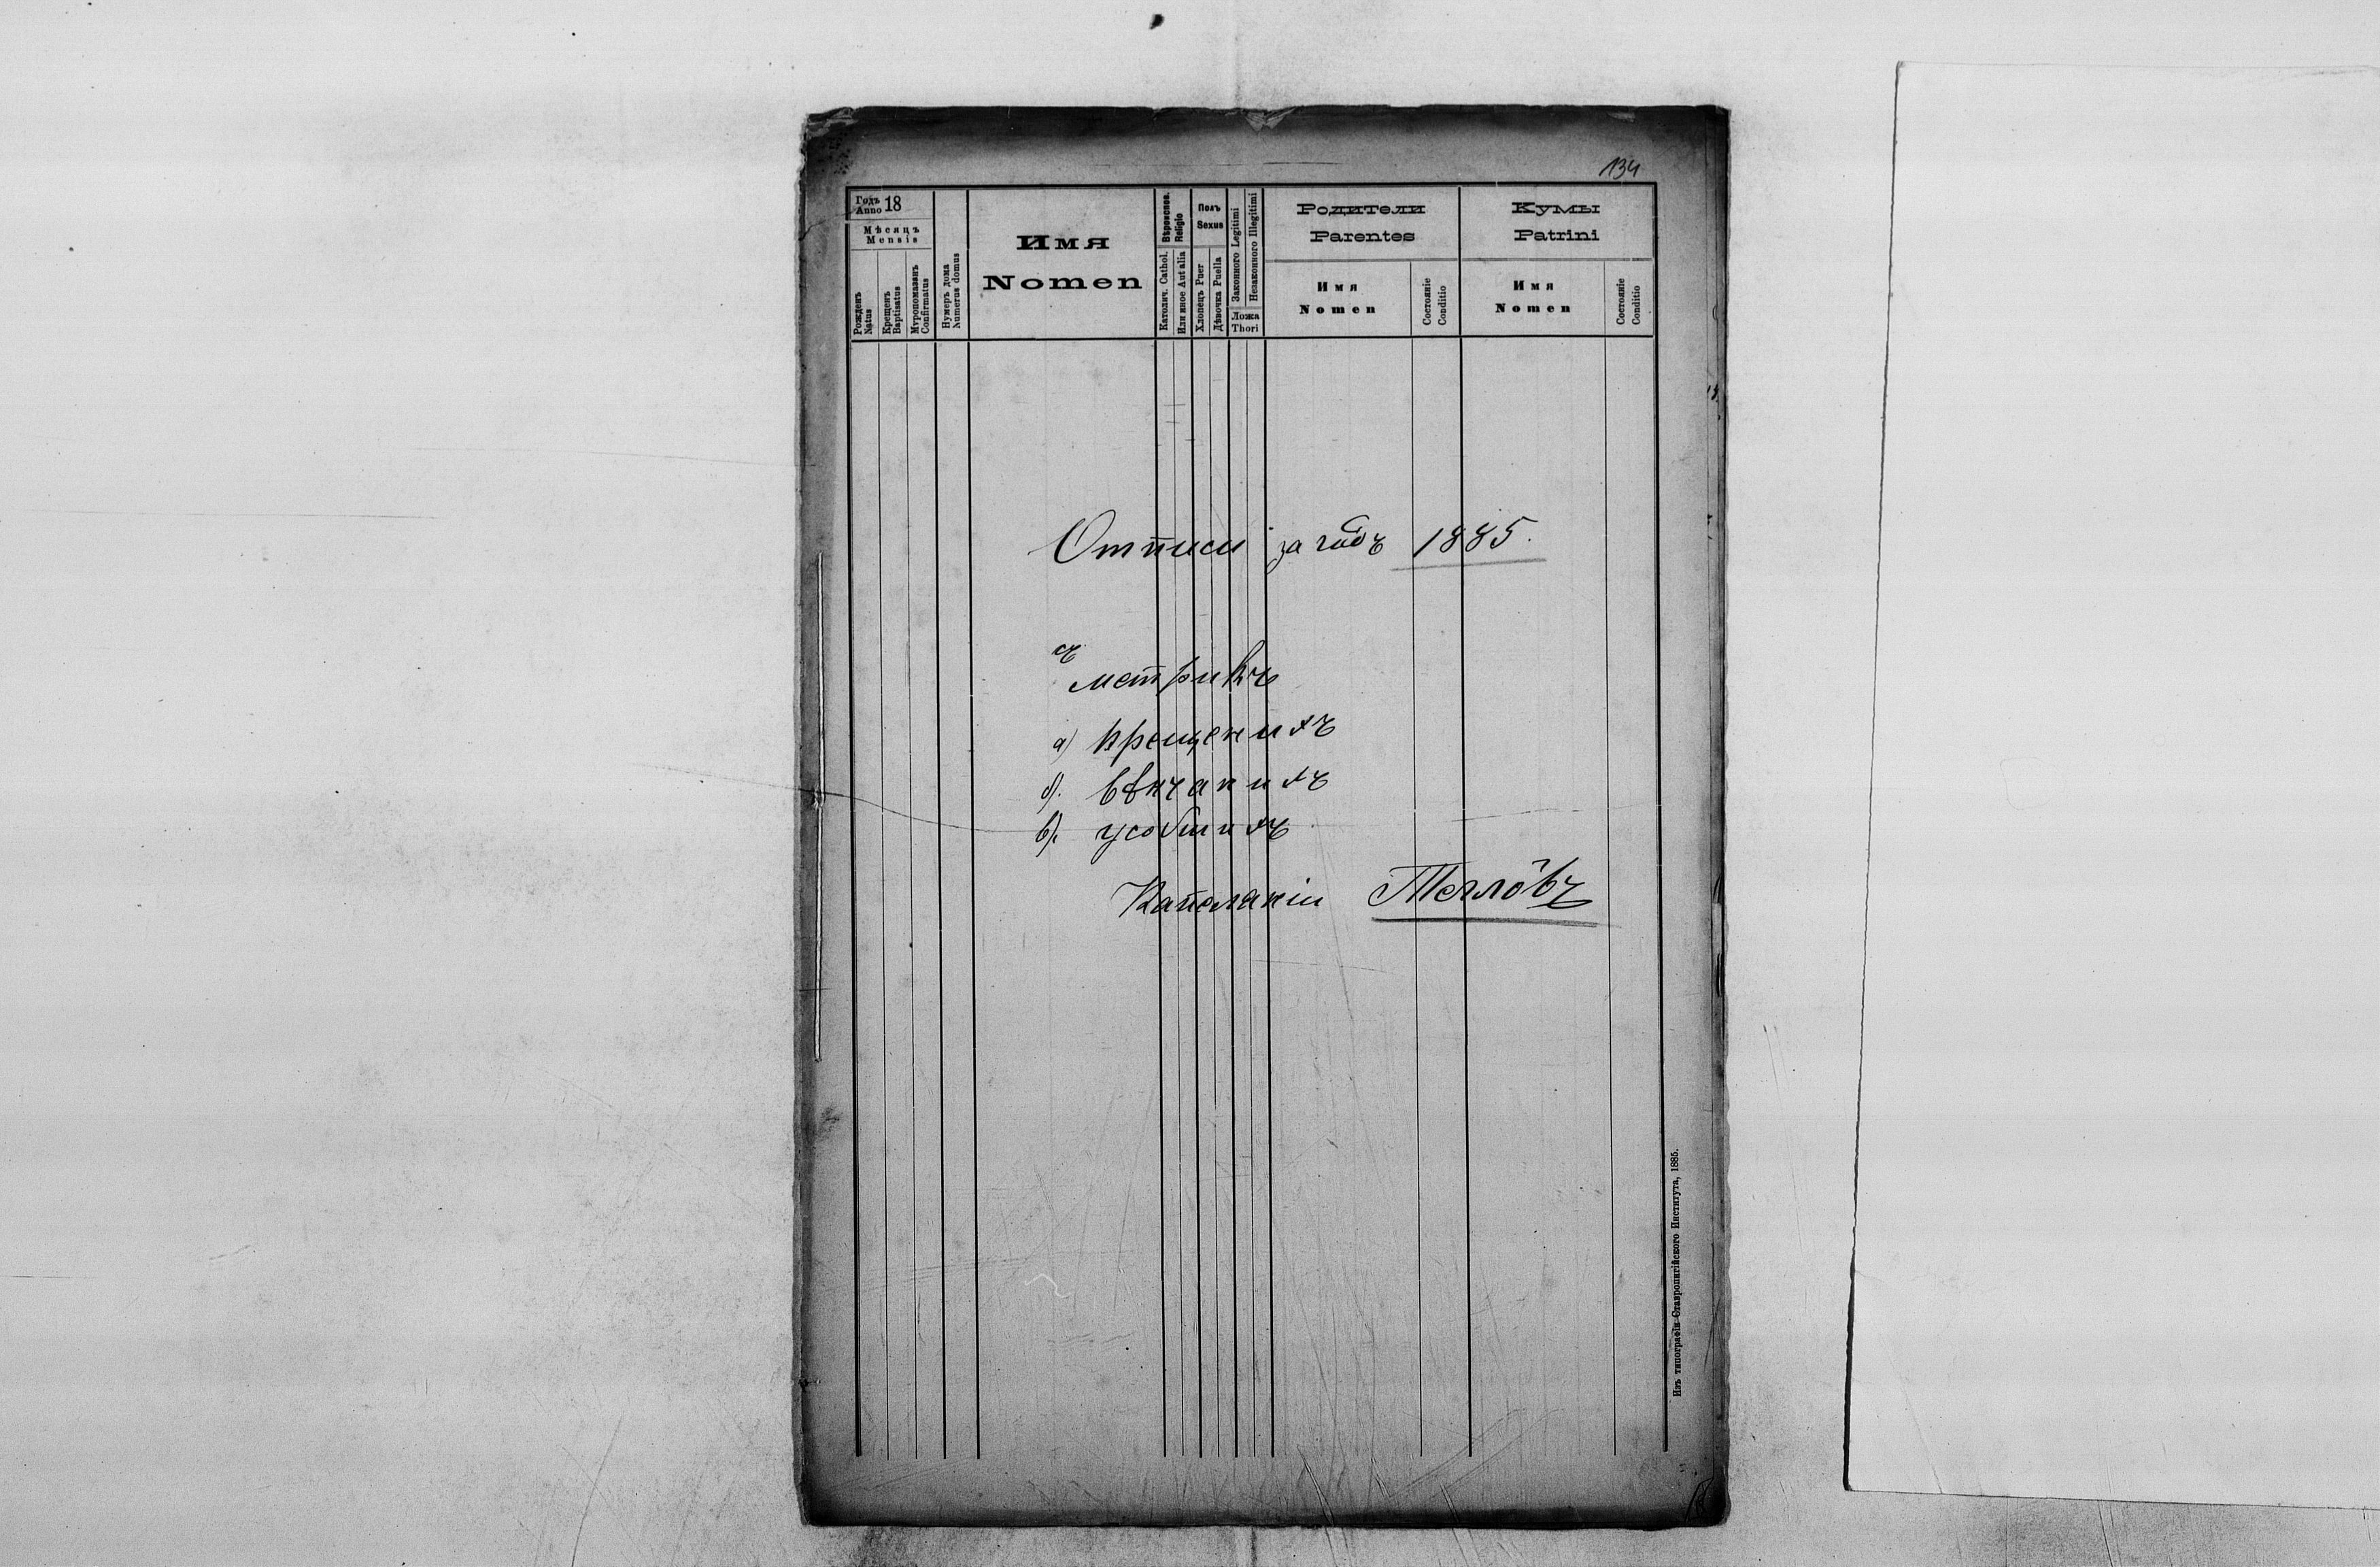 134
Годъ 18
Anno
Мѣсяцъ
Mensis
Рожденъ
Natus
Крещенъ
Baptisatus
Мvропомазанъ
Confirmatus
Нумеръ дома
Numerus domus
Имя
Nomen
Вѣроиспов.
Religio
Католич. Cathol.
Или иное Aut alia
Полъ
Sexus
Хлопець Puer
Дѣвочка Puella
Законного Legitimi
Незаконного Illegitimi
Ложа
Thori
Родители
Parentes
Имя
Nomen
Состояніе
Conditio
Кумы
Patrini
Имя
Nomen
Состояніе
Conditio
Отписи за годъ 1885.
съ
метрикъ
а) крещеныхъ
б). вѣнчаныхъ
в). усопшихъ
Капеланіи
Изъ типографіи Ставропигійского Института, 1885.